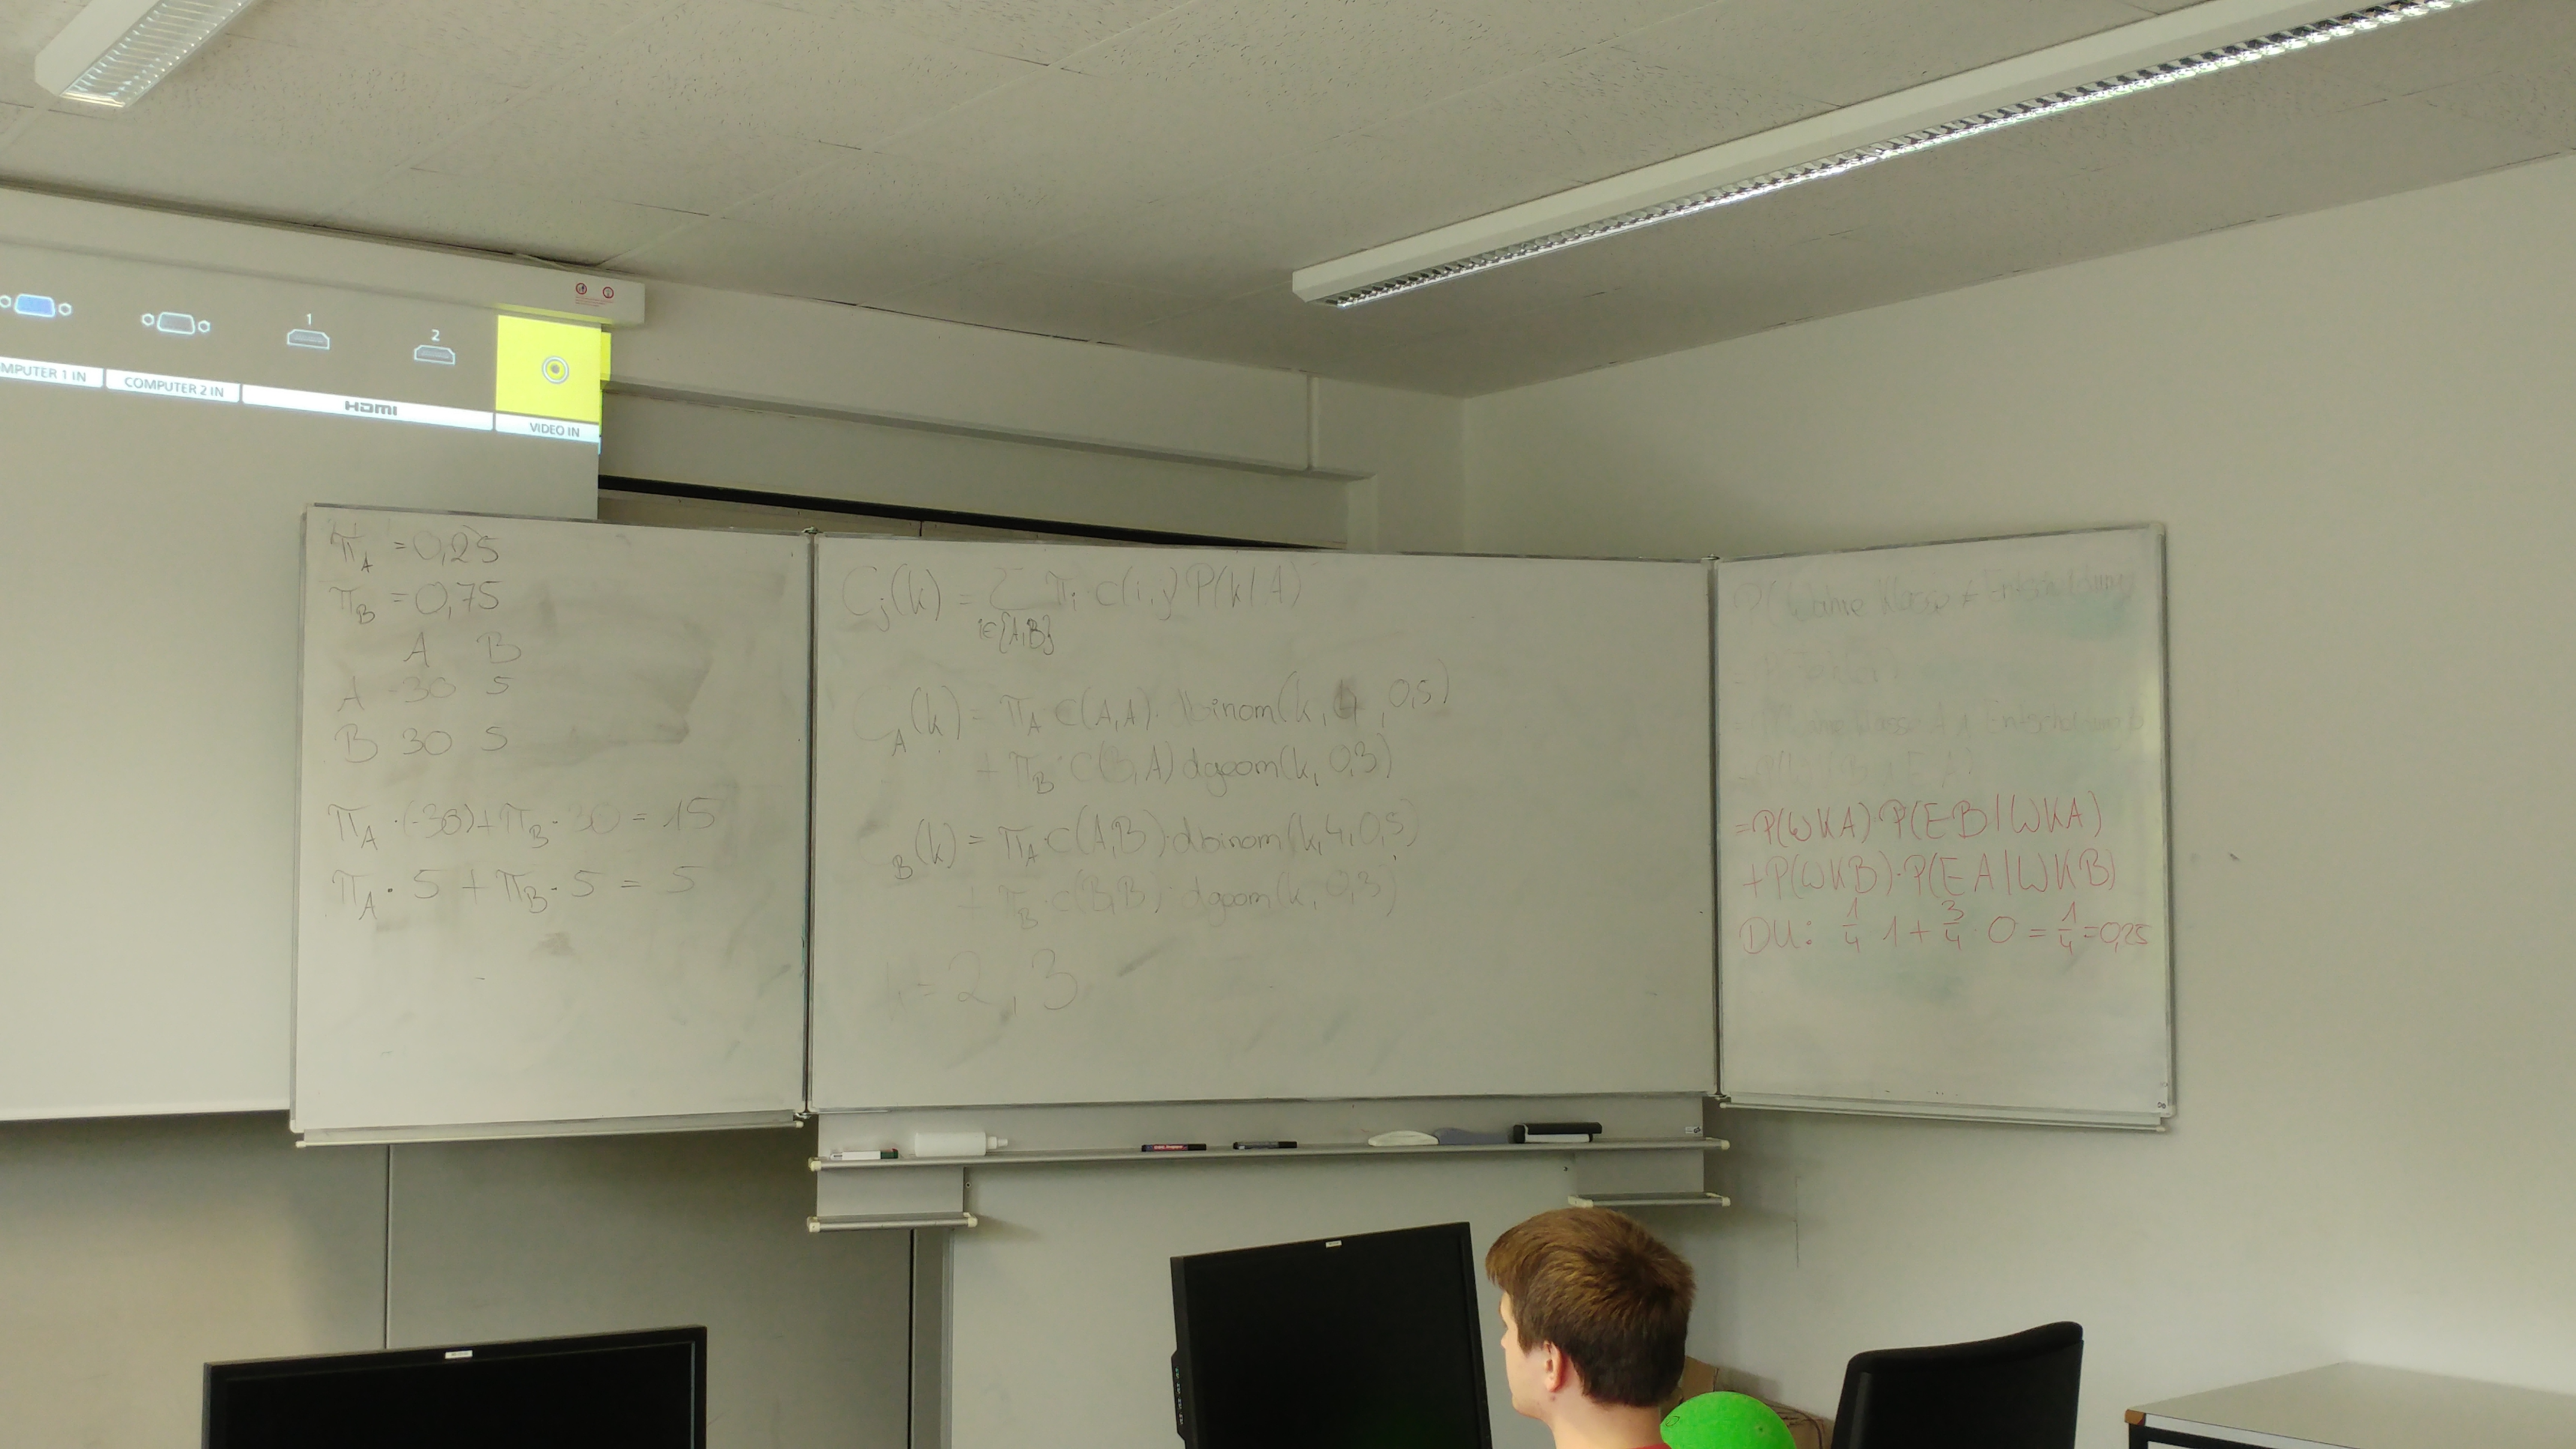 1
2
COMPUTER 2 IN
HDMI
VIDEO IN
π_A = 0,25
π_B = 0,75
A B
A -30 5
B 30 5
π_A · (-30) + π_B · 30 = 15
π_A · 5 + π_B · 5 = 5
C_j(k) = Σ_{i∈{A,B}} π_i c(i,j) P(k|A)
C_A(k) = π_A c(A,A) · dbinom(k, 4, 0,5)
+ π_B · c(B,A) dgeom(k, 0,3)
C_B(k) = π_A · c(A,B) · dbinom(k, 4, 0,5)
+ π_B · c(B,B) · dgeom(k, 0,3)
k = 2, 3
P(Wahre Klasse ≠ Entscheidung
= P(WKA) · P(EB|WKA)
+ P(WKB) · P(EA|WKB)
DU: 1/4 · 1 + 3/4 · 0 = 1/4 = 0,25